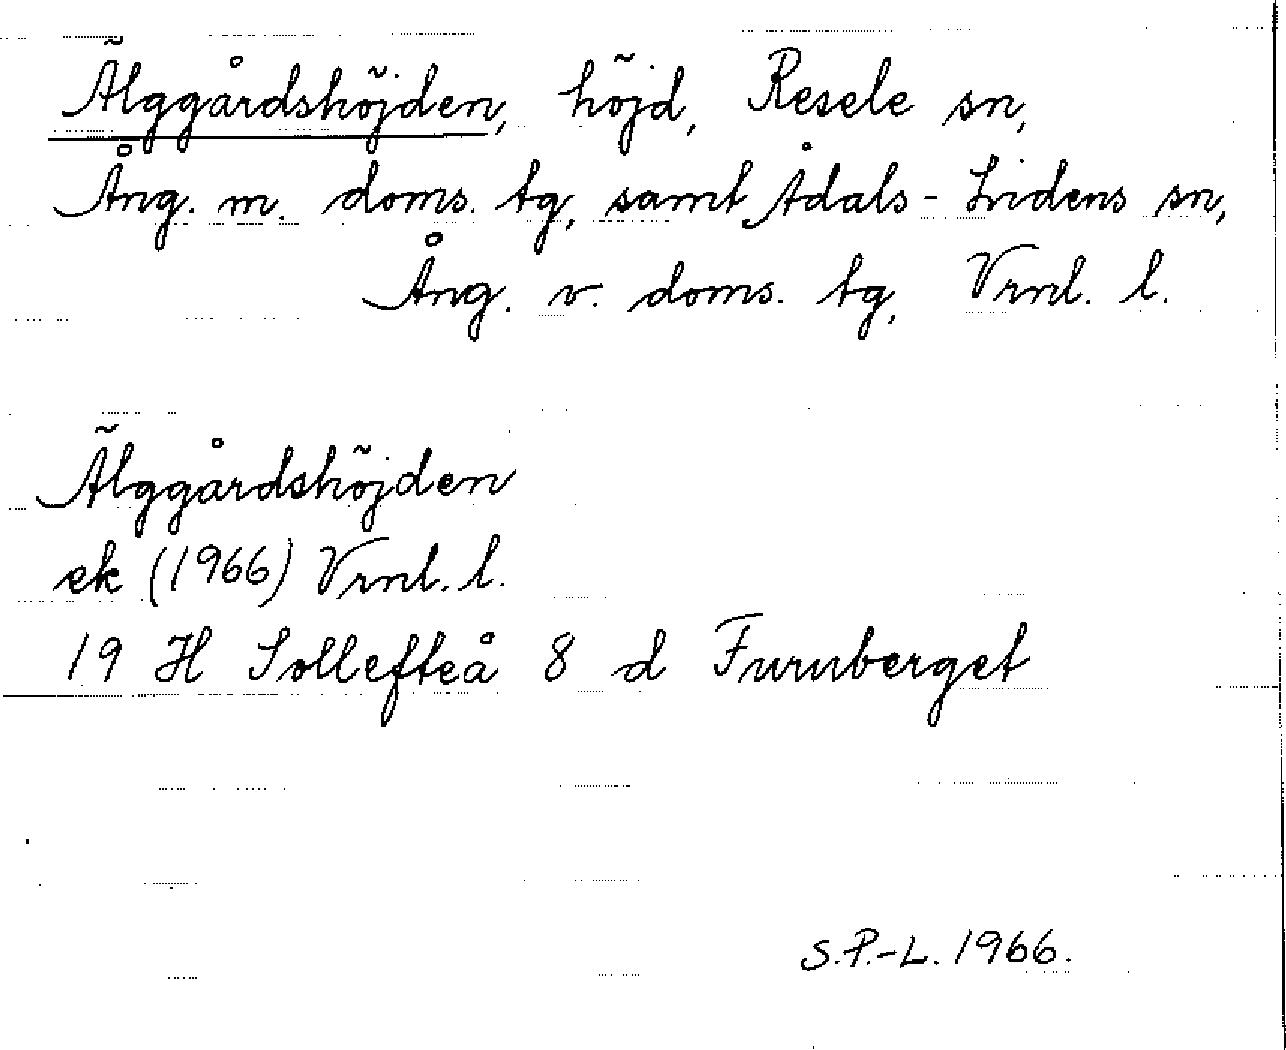 Älggårdshöjden, höjd, Resele sn,
Ång. m. doms. tg, samt Ådals-Lidens sn,
Ång. v. doms. tg, Vrnl. l.
Älggårdshöjden
ek (1966) Vrnl. l.
19 H Sollefteå 8 d Furuberget
S.P.-L. 1966.